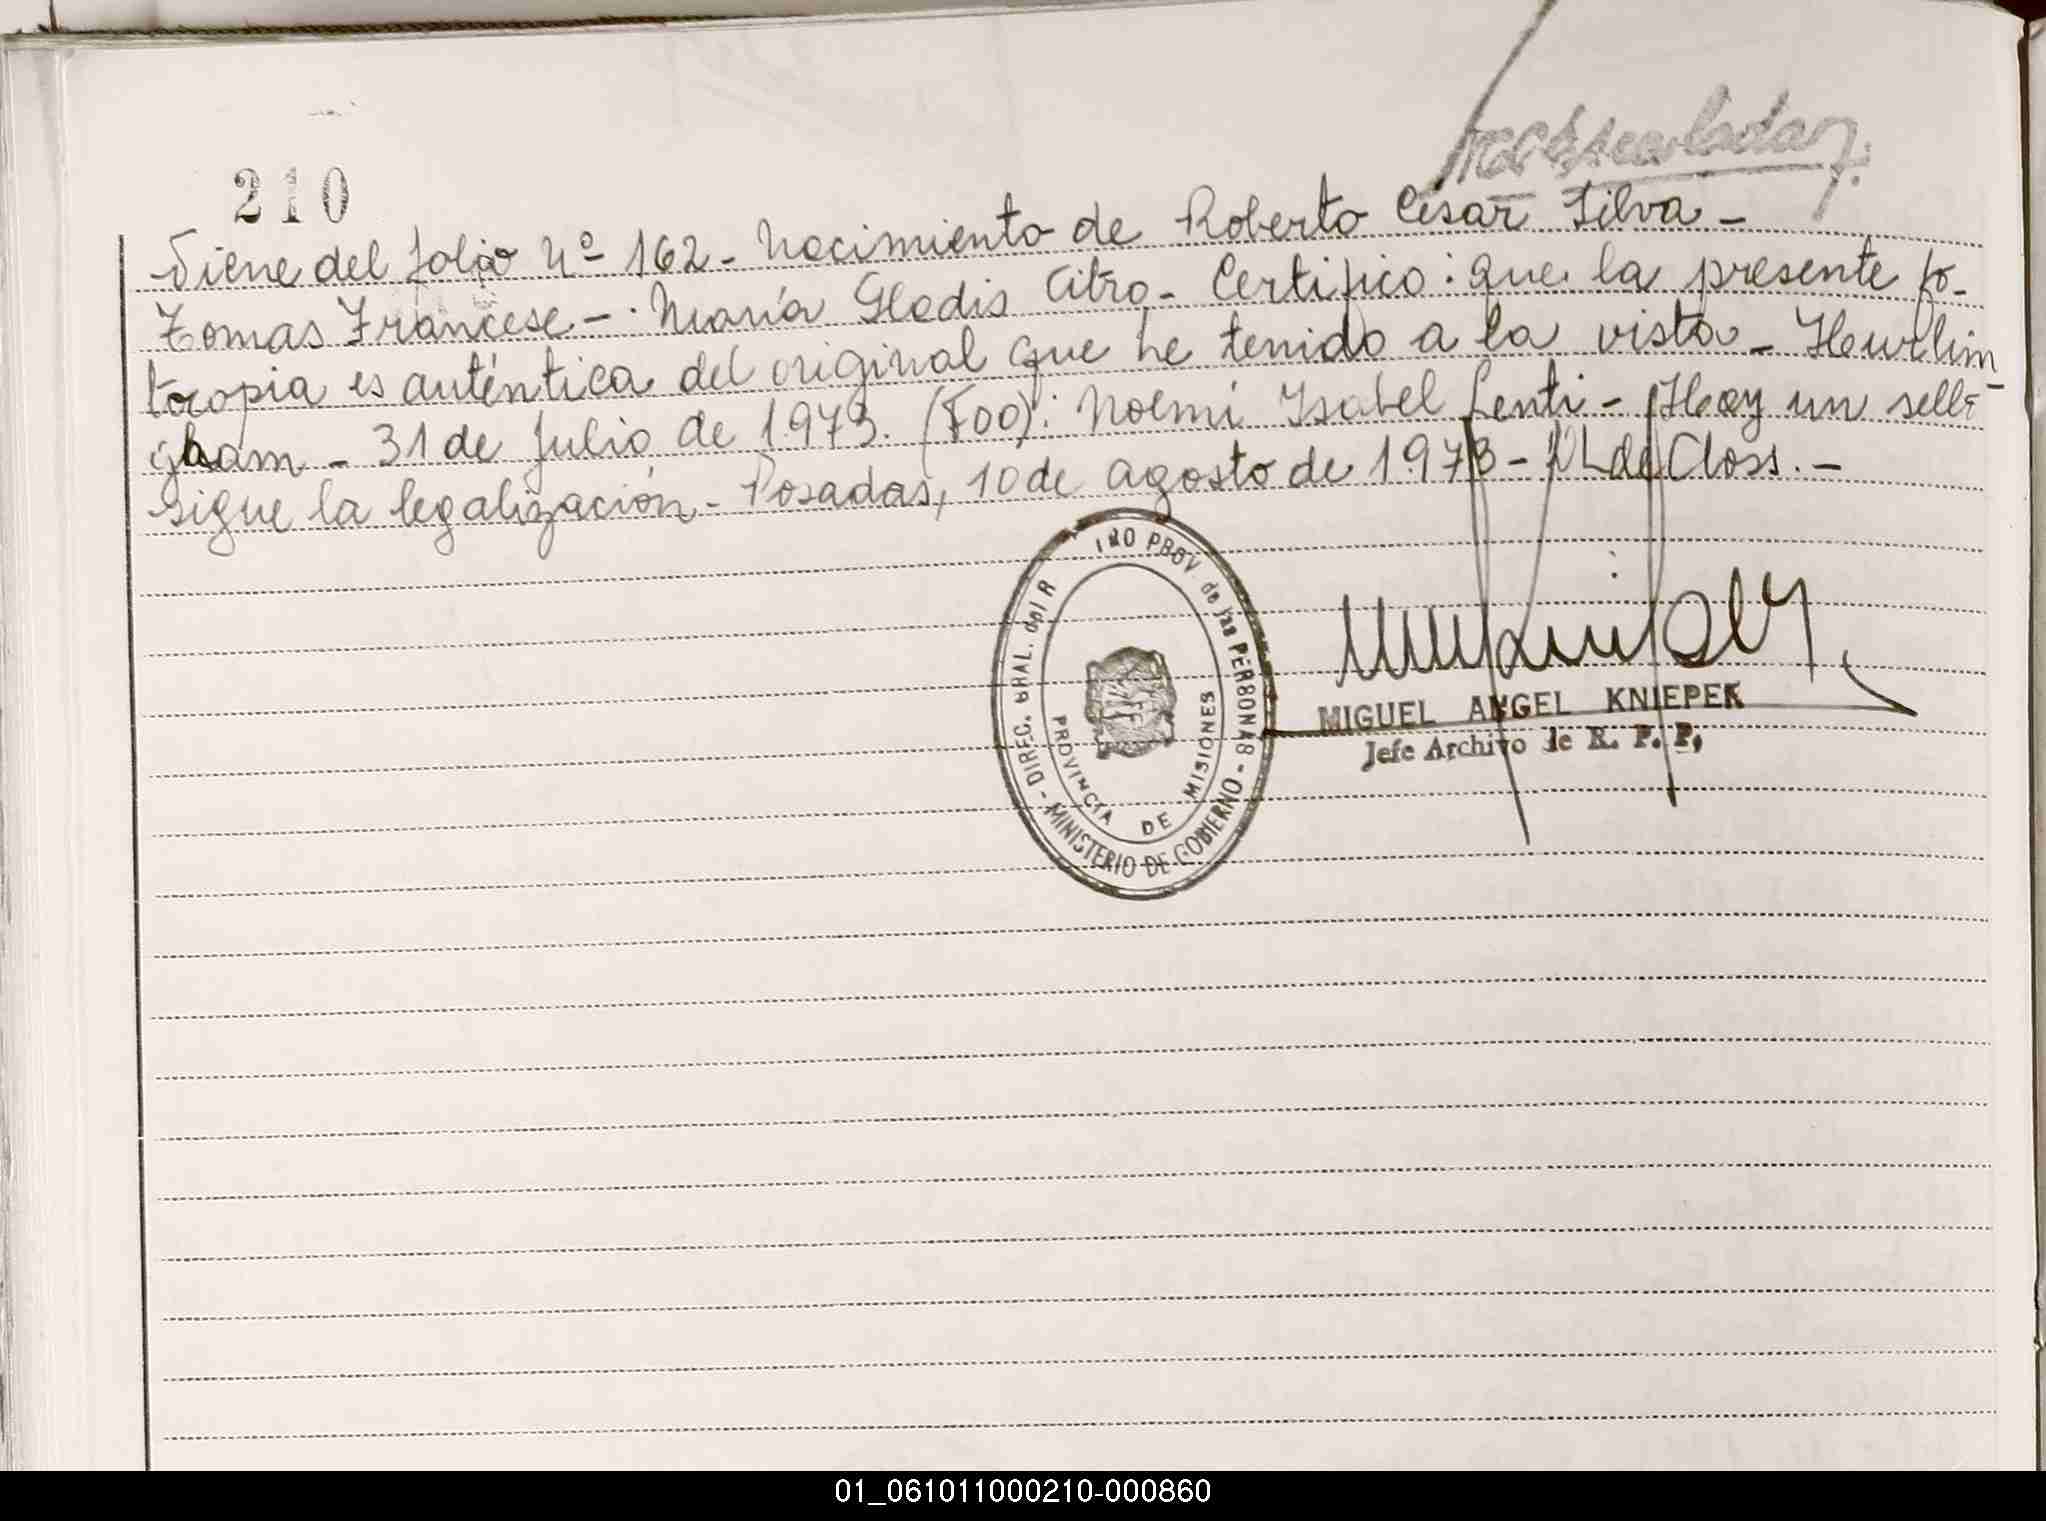 210
Viene del folio Nº 162 - Nacimiento de Roberto César Silva -
Tomas Francese - María Gladis Citro - Certifico: que la presente fo-
tocopia es auténtica del original que he tenido a la vista - Hurlin-
gham - 31 de julio de 1973. (Fdo): Noemí Isabel Lenti - Hay un sello
sigue la legalización - Posadas, 10 de agosto de 1973 - NL de Closs. -
DIREC. GRAL. del R PROV. de las PERSONAS - MINISTERIO DE GOBIERNO -
PROVINCIA DE MISIONES
MIGUEL ANGEL KNIEPEK
Jefe Archivo de R. P. P.
01_061011000210-000860